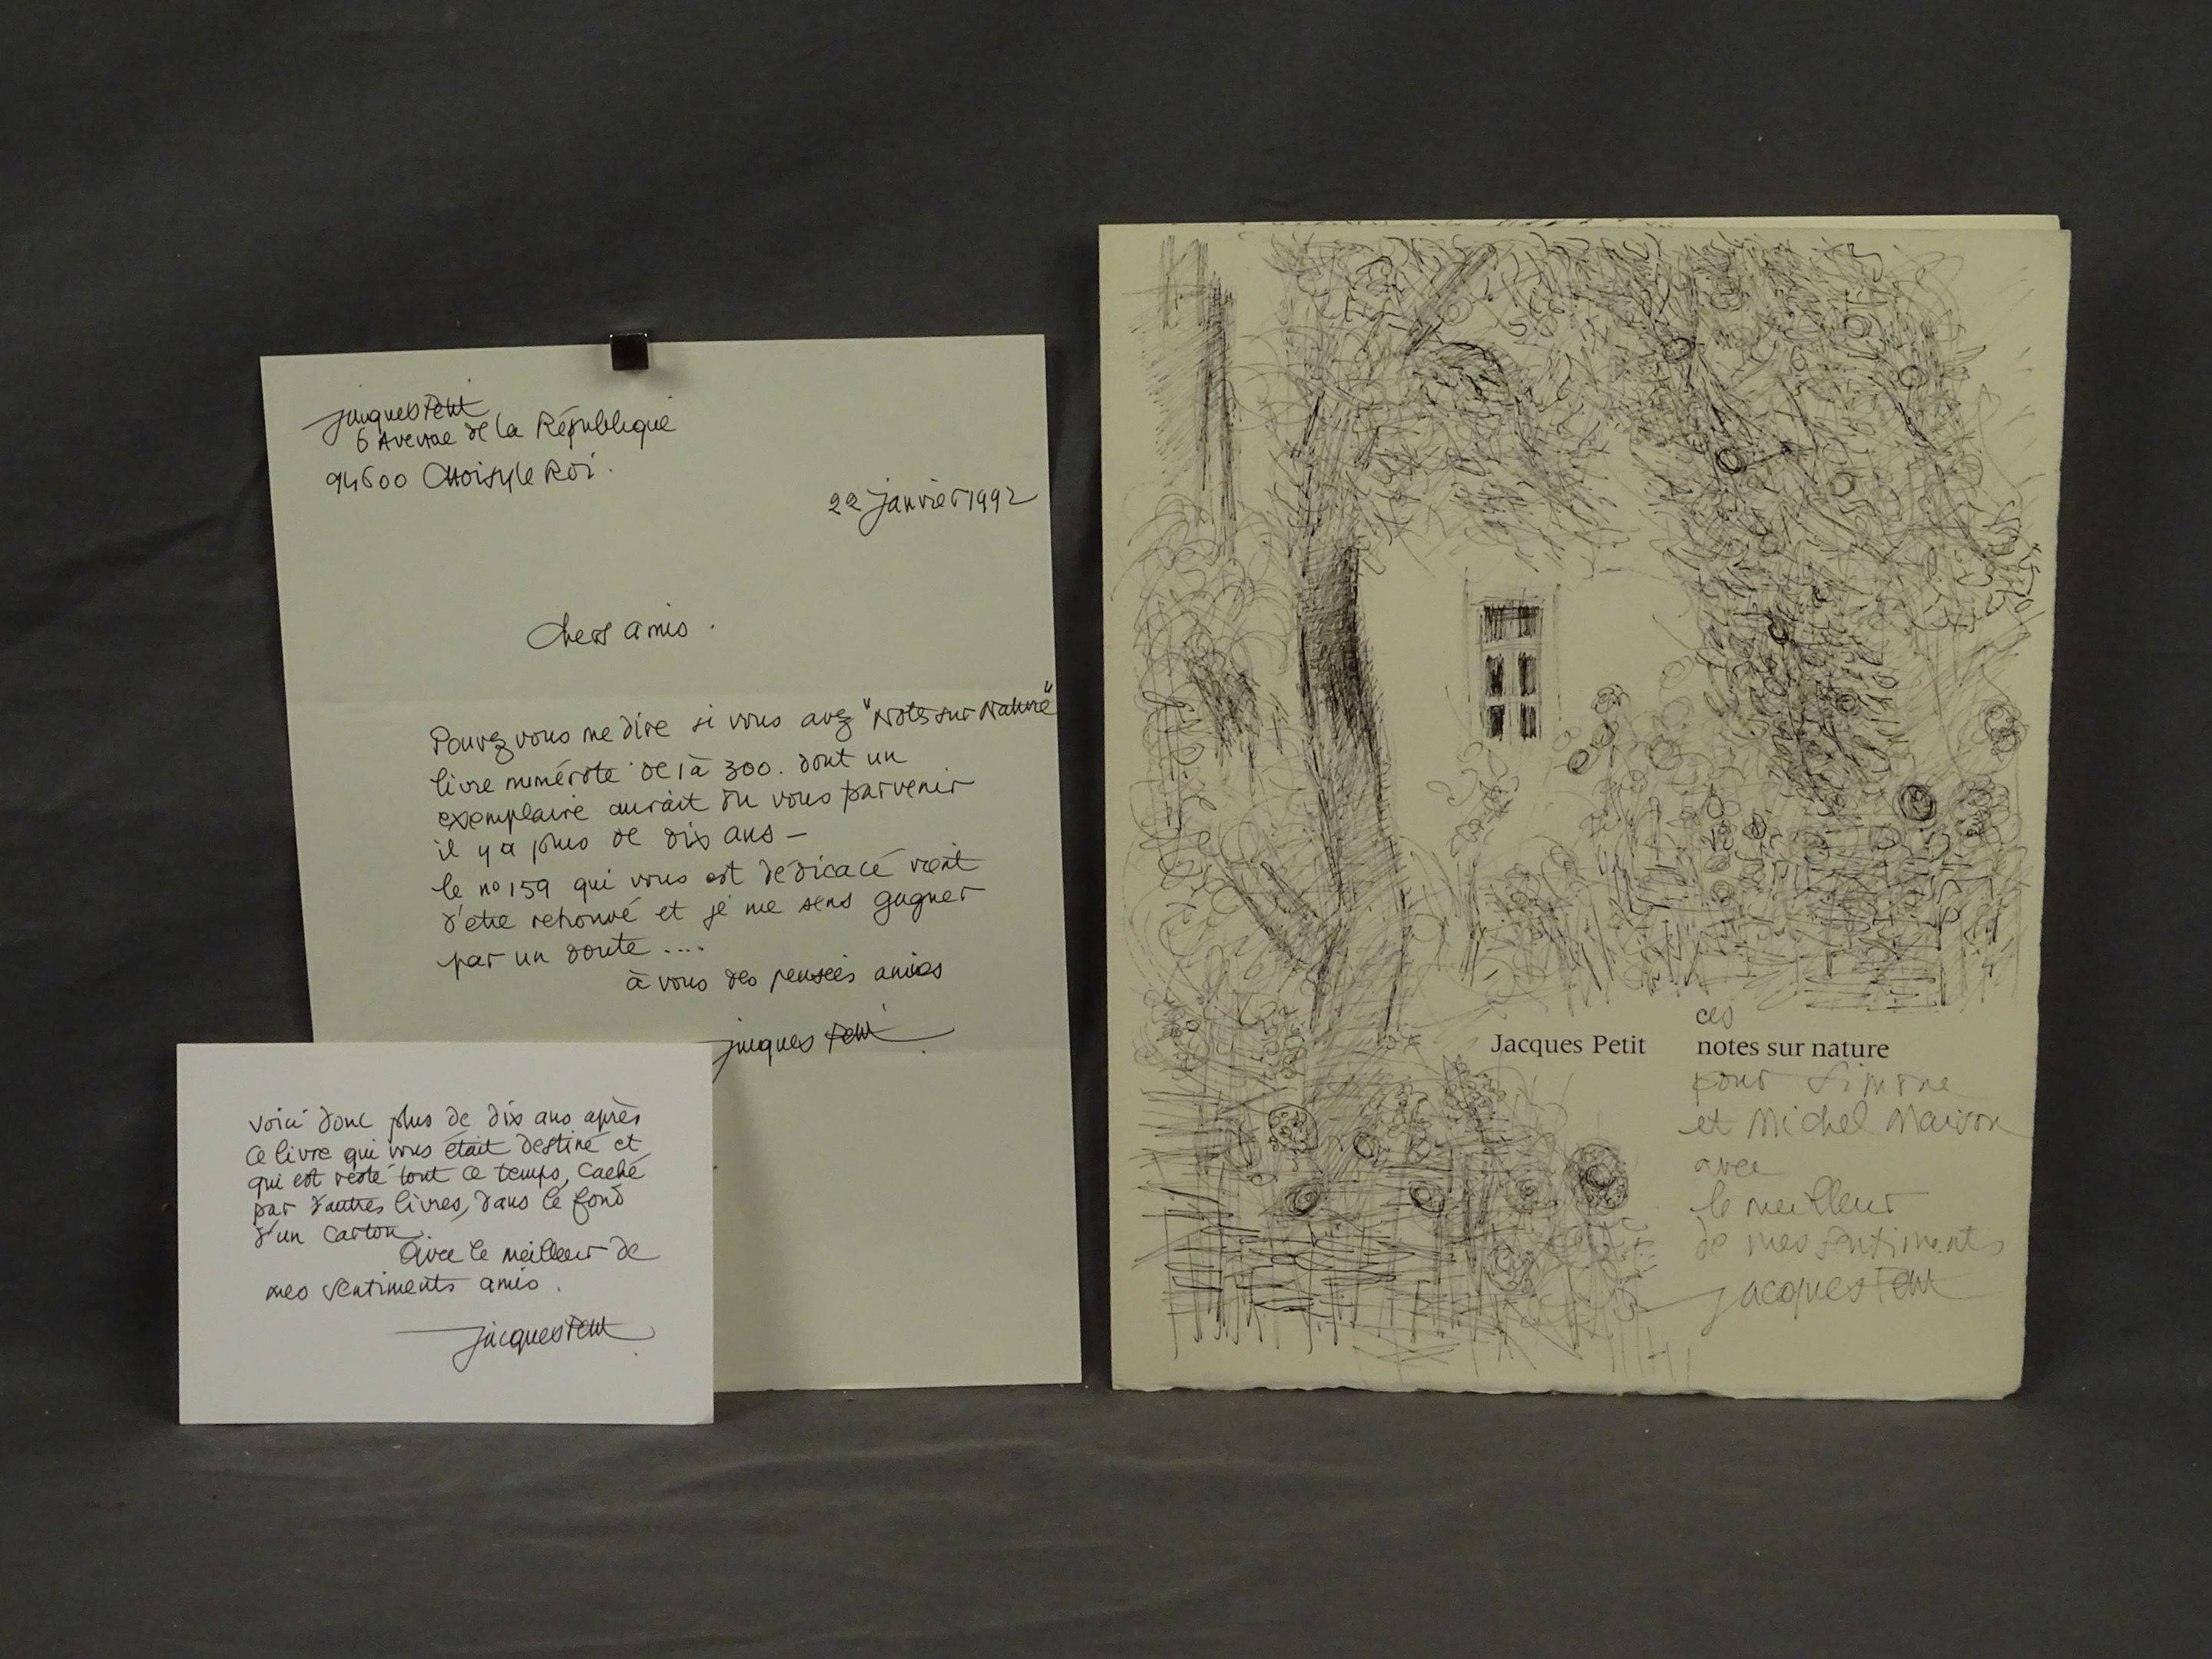 Jacques Petit
6 Avenue de la République
94600 Choisy le Roi.
22 janvier 1992
Chers amis.
Pouvez vous me dire si vous avez "Notes sur Nature"
livre numéroté de 1 à 300. dont un
exemplaire aurait du vous parvenir
il y a plus de dix ans —
le no 159 qui vous est dédicacé vient
d'etre retrouvé et je me sens gagner
par un doute ....
à vous des pensées amies
jacques Petit
voici donc plus de dix ans après
ce livre qui vous était destiné et
qui est resté tout ce temps, caché
par d'autres livres, dans le fond
d'un carton.
Avec le meilleur de
mes sentiments amis.
jacques Petit
ces
Jacques Petit notes sur nature
pour Simone
et Michel
avec
le meilleur
de mes sentiments
jacques Petit